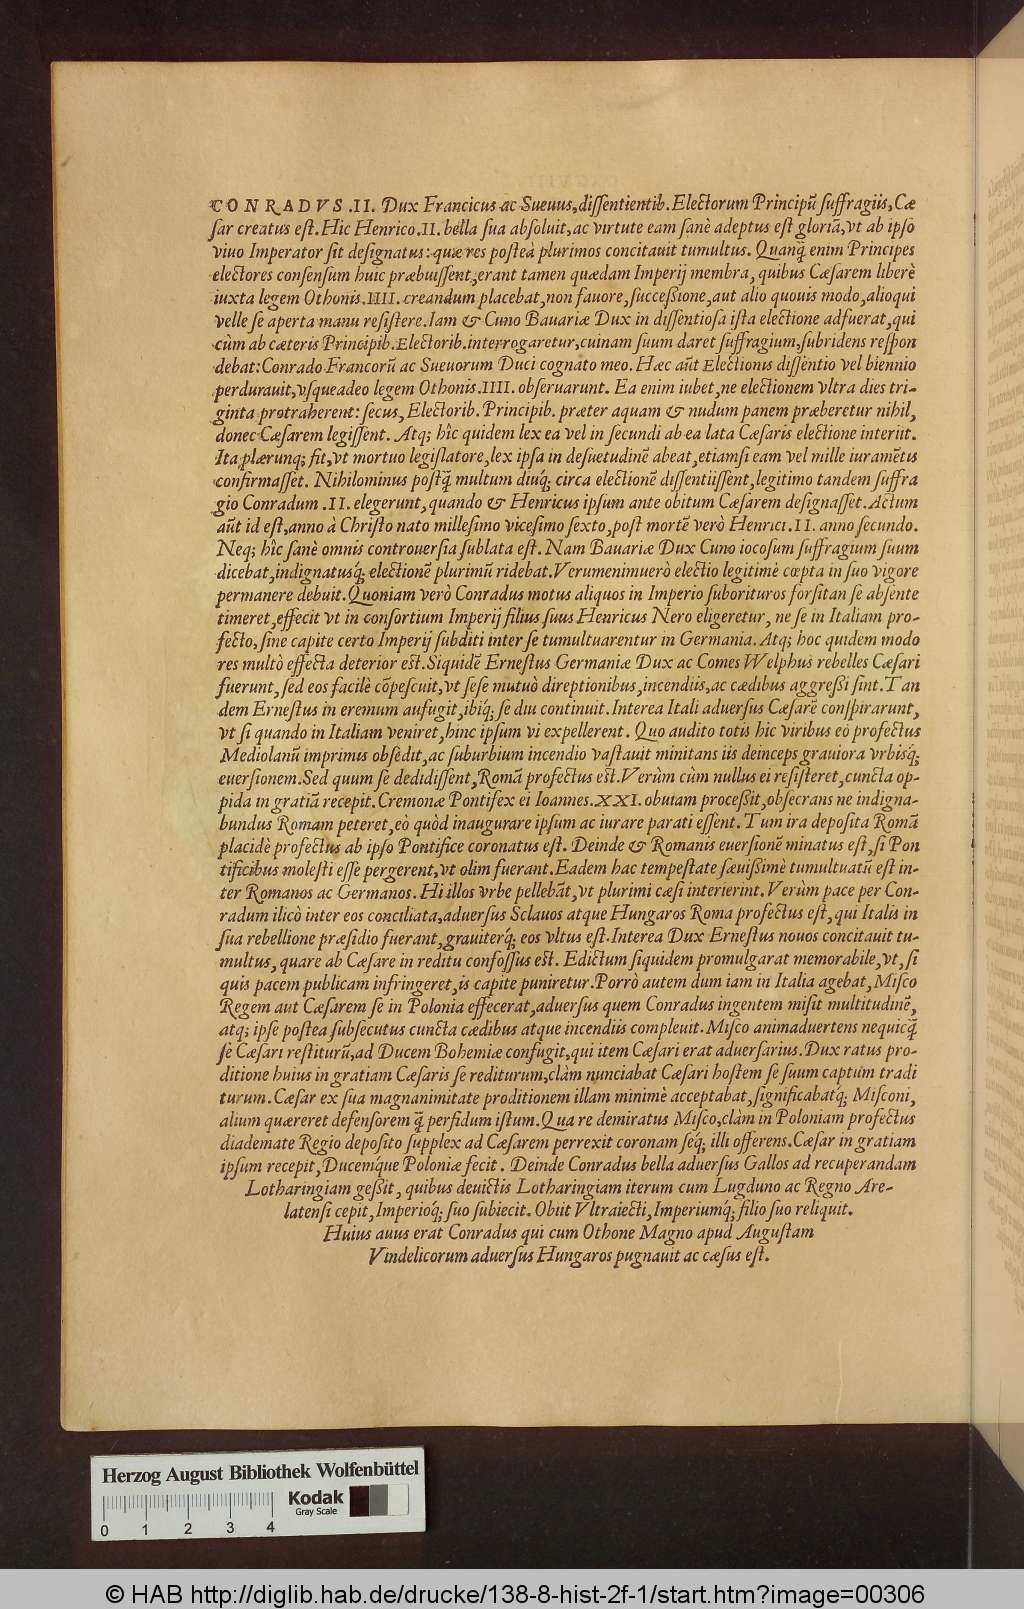 CONRADVS .II. Dux Francicus ac Sueuus, diſſentientib. Electorum Principũ ſuffragiis, Cæ
ſar creatus eſt. Hic Henrico .II. bella ſua abſoluit, ac virtute eam ſanè adeptus eſt gloriã, vt ab ipſo
viuo Imperator ſit deſignatus: quæ res poſteà plurimos concitauit tumultus. Quanq̃ enim Principes
electores conſenſum huic præbuiſſent, erant tamen quædam Imperij membra, quibus Cæſarem liberè
iuxta legem Othonis .IIII. creandum placebat, non fauore, ſucceſſione, aut alio quouis modo, alioqui
velle ſe aperta manu reſiſtere. Iam & Cuno Bauariæ Dux in diſſentioſa iſta electione adfuerat, qui
cùm ab cæteris Principib. Electorib. interrogaretur, cuinam ſuum daret ſuffragium, ſubridens reſpon
debat: Conrado Francorũ ac Sueuorum Duci cognato meo. Hæc aũt Electionis diſſentio vel biennio
perdurauit, vſqueadeo legem Othonis .IIII. obſeruarunt. Ea enim iubet, ne electionem vltra dies tri-
ginta protraherent: ſecus, Electorib. Principib. præter aquam & nudum panem præberetur nihil,
donec Cæſarem legiſſent. Atq; hîc quidem lex ea vel in ſecundi ab ea lata Cæſaris electione interiit.
Ita plærunq; fit, vt mortuo legiſlatore, lex ipſa in deſuetudinẽ abeat, etiamſi eam vel mille iuramẽtis
confirmaſſet. Nihilominus poſtq̃ multum diuq́; circa electionẽ diſſentiiſſent, legitimo tandem ſuffra
gio Conradum .II. elegerunt, quando & Henricus ipſum ante obitum Cæſarem deſignaſſet. Actum
aũt id eſt, anno à Chriſto nato milleſimo viceſimo ſexto, poſt mortẽ verò Henrici .II. anno ſecundo.
Neq; hîc ſanè omnis controuerſia ſublata eſt. Nam Bauariæ Dux Cuno iocoſum ſuffragium ſuum
dicebat, indignatusq́; electionẽ plurimũ ridebat. Verumenimuerò electio legitimè cœpta in ſuo vigore
permanere debuit. Quoniam verò Conradus motus aliquos in Imperio ſuborituros forſitan ſe abſente
timeret, effecit vt in conſortium Imperij filius ſuus Henricus Nero eligeretur, ne ſe in Italiam pro-
fecto, ſine capite certo Imperij ſubditi inter ſe tumultuarentur in Germania. Atq; hoc quidem modo
res multò effecta deterior eſt. Siquidẽ Erneſtus Germaniæ Dux ac Comes Welphus rebelles Cæſari
fuerunt, ſed eos facilè cõpeſcuit, vt ſeſe mutuò direptionibus, incendiis, ac cædibus aggreſſi ſint. Tan
dem Erneſtus in eremum aufugit, ibiq́; ſe diu continuit. Interea Itali aduerſus Cæſarẽ conſpirarunt,
vt ſi quando in Italiam veniret, hinc ipſum vi expellerent. Quo audito totis hic viribus eò profectus
Mediolanũ imprimis obſedit, ac ſuburbium incendio vaſtauit minitans iis deinceps grauiora vrbisq́;
euerſionem. Sed quum ſe dedidiſſent, Romã profectus eſt. Verùm cùm nullus ei reſiſteret, cuncta op-
pida in gratiã recepit. Cremonæ Pontifex ei Ioannes .XXI. obuiam proceſſit, obſecrans ne indigna-
bundus Romam peteret, eò quòd inaugurare ipſum ac iurare parati eſſent. Tum ira depoſita Romã
placidè profectus ab ipſo Pontifice coronatus eſt. Deinde & Romanis euerſionẽ minatus eſt, ſi Pon
tificibus moleſti eſſe pergerent, vt olim fuerant. Eadem hac tempeſtate ſæuiſſimè tumultuatũ eſt in-
ter Romanos ac Germanos. Hi illos vrbe pellebãt, vt plurimi cæſi interierint. Verùm pace per Con-
radum ilicò inter eos conciliata, aduerſus Sclauos atque Hungaros Roma profectus eſt, qui Italis in
ſua rebellione præſidio fuerant, grauiterq́; eos vltus eſt. Interea Dux Erneſtus nouos concitauit tu-
multus, quare ab Cæſare in reditu confoſſus eſt. Edictum ſiquidem promulgarat memorabile, vt, ſi
quis pacem publicam infringeret, is capite puniretur. Porrò autem dum iam in Italia agebat, Miſco
Regem aut Cæſarem ſe in Polonia effecerat, aduerſus quem Conradus ingentem miſit multitudinẽ,
atq; ipſe poſtea ſubſecutus cuncta cædibus atque incendiis compleuit. Miſco animaduertens nequicq̃
ſe Cæſari reſtiturũ, ad Ducem Bohemiæ confugit, qui item Cæſari erat aduerſarius. Dux ratus pro-
ditione huius in gratiam Cæſaris ſe rediturum, clàm nunciabat Cæſari hoſtem ſe ſuum captum tradi
turum. Cæſar ex ſua magnanimitate proditionem illam minimè acceptabat, ſignificabatq́; Miſconi,
alium quæreret defenſorem q̃ perfidum iſtum. Qua re demiratus Miſco, clàm in Poloniam profectus
diademate Regio depoſito ſupplex ad Cæſarem perrexit coronam ſeq́; illi offerens. Cæſar in gratiam
ipſum recepit, Ducemq́ue Poloniæ fecit. Deinde Conradus bella aduerſus Gallos ad recuperandam
Lotharingiam geſſit, quibus deuictis Lotharingiam iterum cum Lugduno ac Regno Are-
latenſi cepit, Imperioq́; ſuo ſubiecit. Obiit Vltraiecti, Imperiumq́; filio ſuo reliquit.
Huius auus erat Conradus qui cum Othone Magno apud Auguſtam
Vindelicorum aduerſus Hungaros pugnauit ac cæſus eſt.
Herzog August Bibliothek Wolfenbüttel
Kodak
Gray Scale
0 1 2 3 4
© HAB http://diglib.hab.de/drucke/138-8-hist-2f-1/start.htm?image=00306